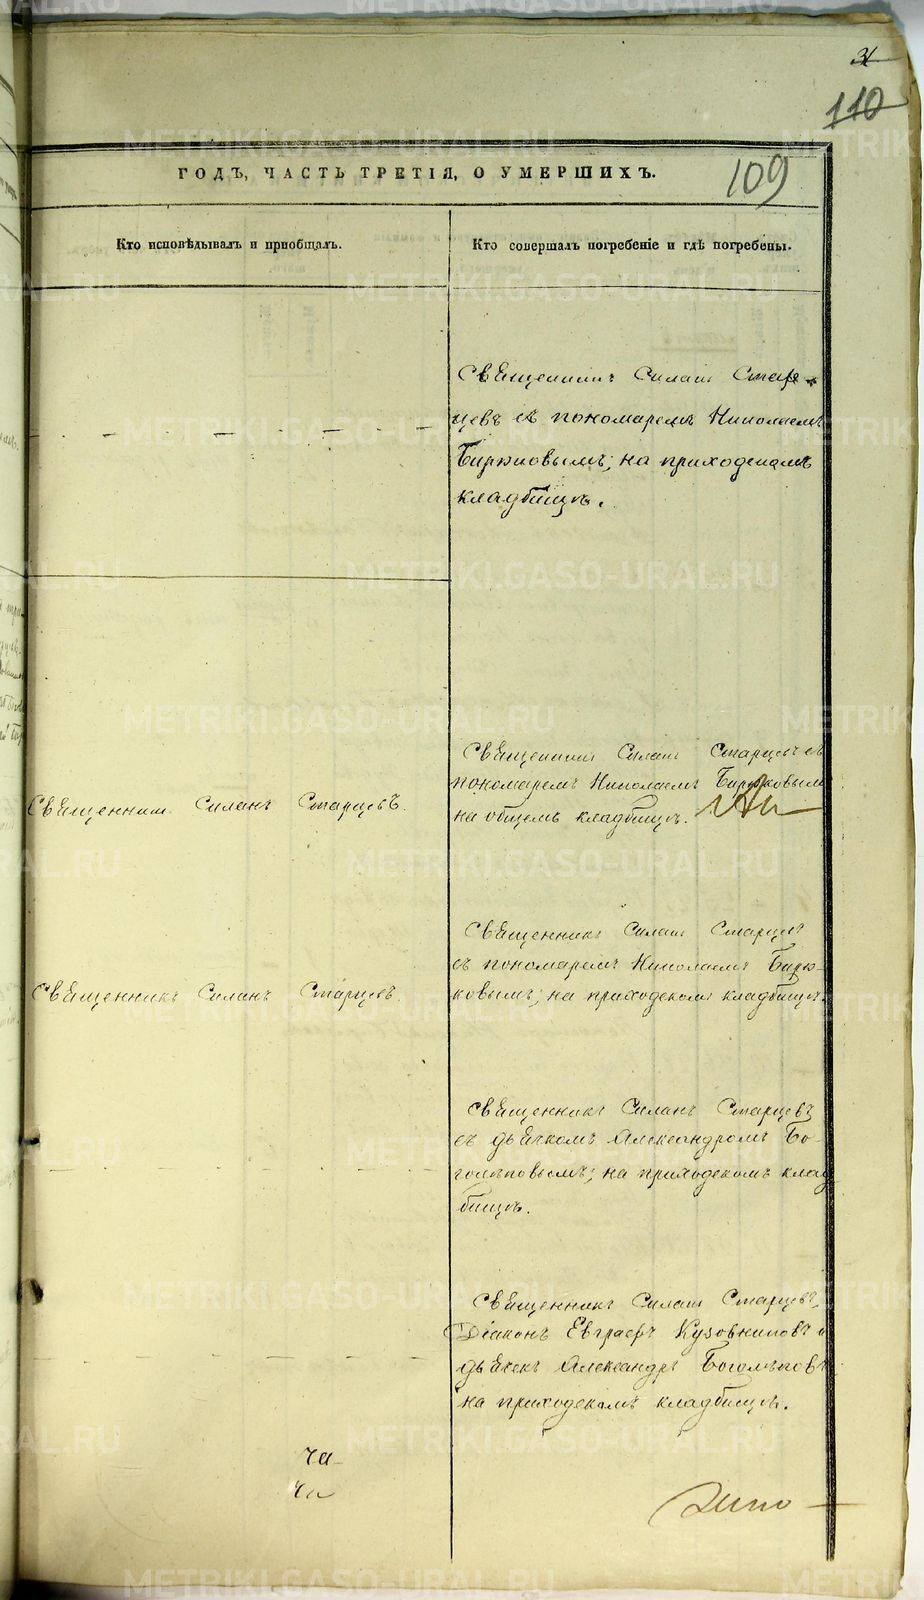 31
110
109
ГОДЪ, ЧАСТЬ ТРЕТІЯ, О УМЕРШИХЪ.
Кто исповѣдывалъ и пріобщалъ.
Кто совершалъ погребеніе и гдѣ погребены.
Священникъ Силанъ Стар-
цевъ съ пономаремъ Николаемъ
Бирюковымъ; на приходскомъ
кладбищѣ.
Священникъ Силанъ Старцевъ съ
пономаремъ Николаемъ Бирюковымъ
на общемъ кладбищѣ.
Священникъ Силанъ Старцевъ.
Священникъ Силанъ Старцевъ
съ пономаремъ Николаемъ Бирю-
ковымъ; на приходскомъ кладбищѣ.
Священникъ Силанъ Старцевъ.
Священникъ Силанъ Старцевъ
съ дьячкомъ Александромъ Бо-
голѣповымъ; на приходскомъ клад
бищѣ.
Священникъ Силанъ Старцевъ,
Діаконъ Евграфъ Кузовниковъ и
дьячекъ Александръ Боголѣповъ
на приходскомъ кладбищѣ.
ча
ча
METRIKI.GASO-URAL.RU